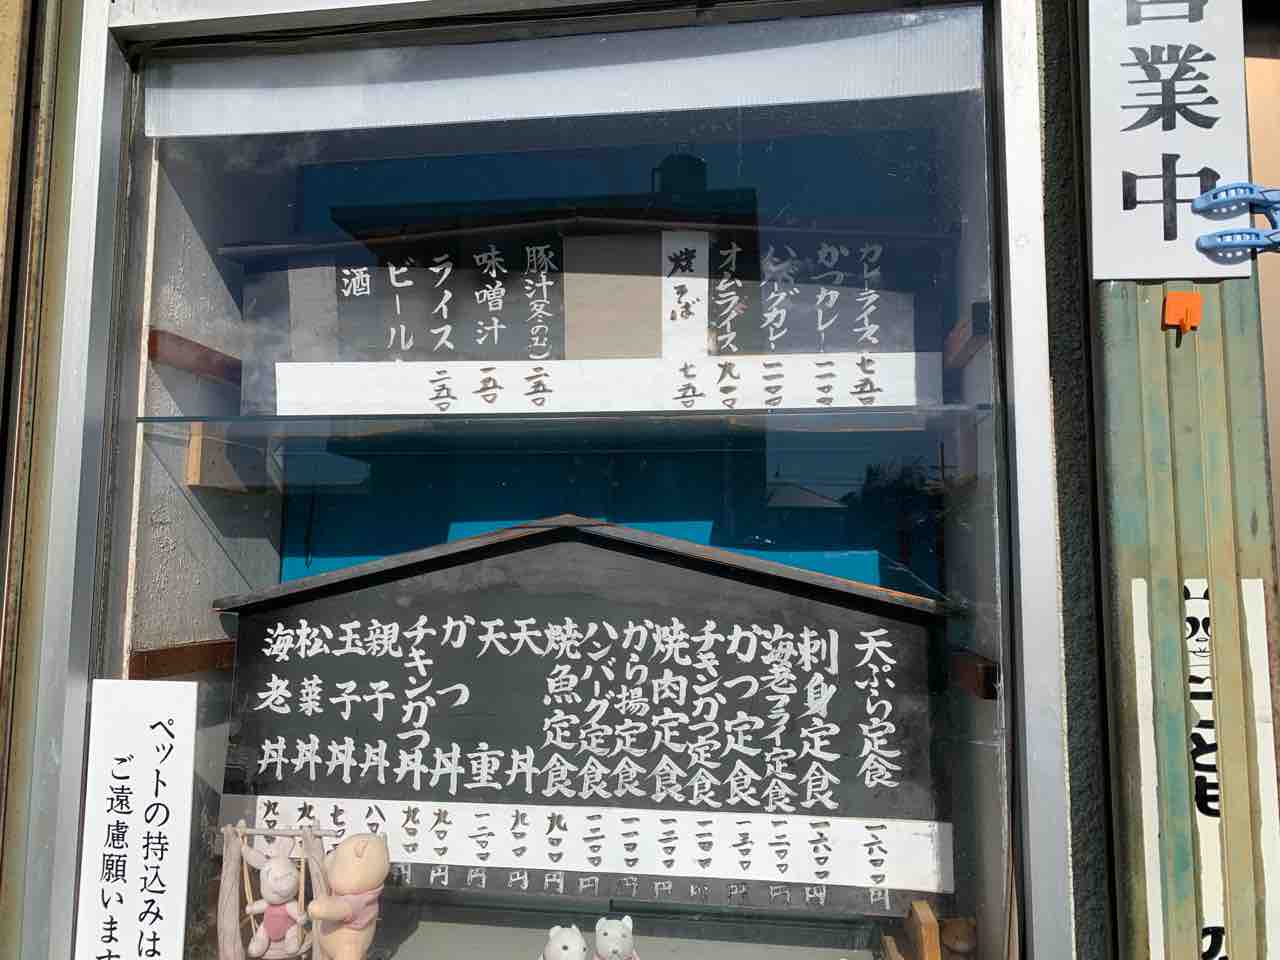 営業中
カレーライス 七五〇
かつカレー 一一〇〇
ハンバーグカレー 一一〇〇
オムライス 九一〇
焼そば 七五〇
豚汁(冬のみ) 二五〇
味噌汁 一五〇
ライス 二五〇
ビール
酒
天ぷら定食 一六〇〇円
刺身定食 一六〇〇円
海老フライ定食 一二〇〇円
かつ定食 一三〇〇円
チキンかつ定食 一一〇〇円
焼肉定食 一二〇〇円
から揚定食 一一〇〇円
ハンバーグ定食 一二〇〇円
焼魚定食 九〇〇円
天丼 九〇〇円
天重 一二〇〇円
かつ丼 九〇〇円
チキンかつ丼 九〇〇円
親子丼 八〇
玉子丼 七〇
松葉丼 九〇
海老丼 九〇
ペットの持込みは
ご遠慮願います
こども